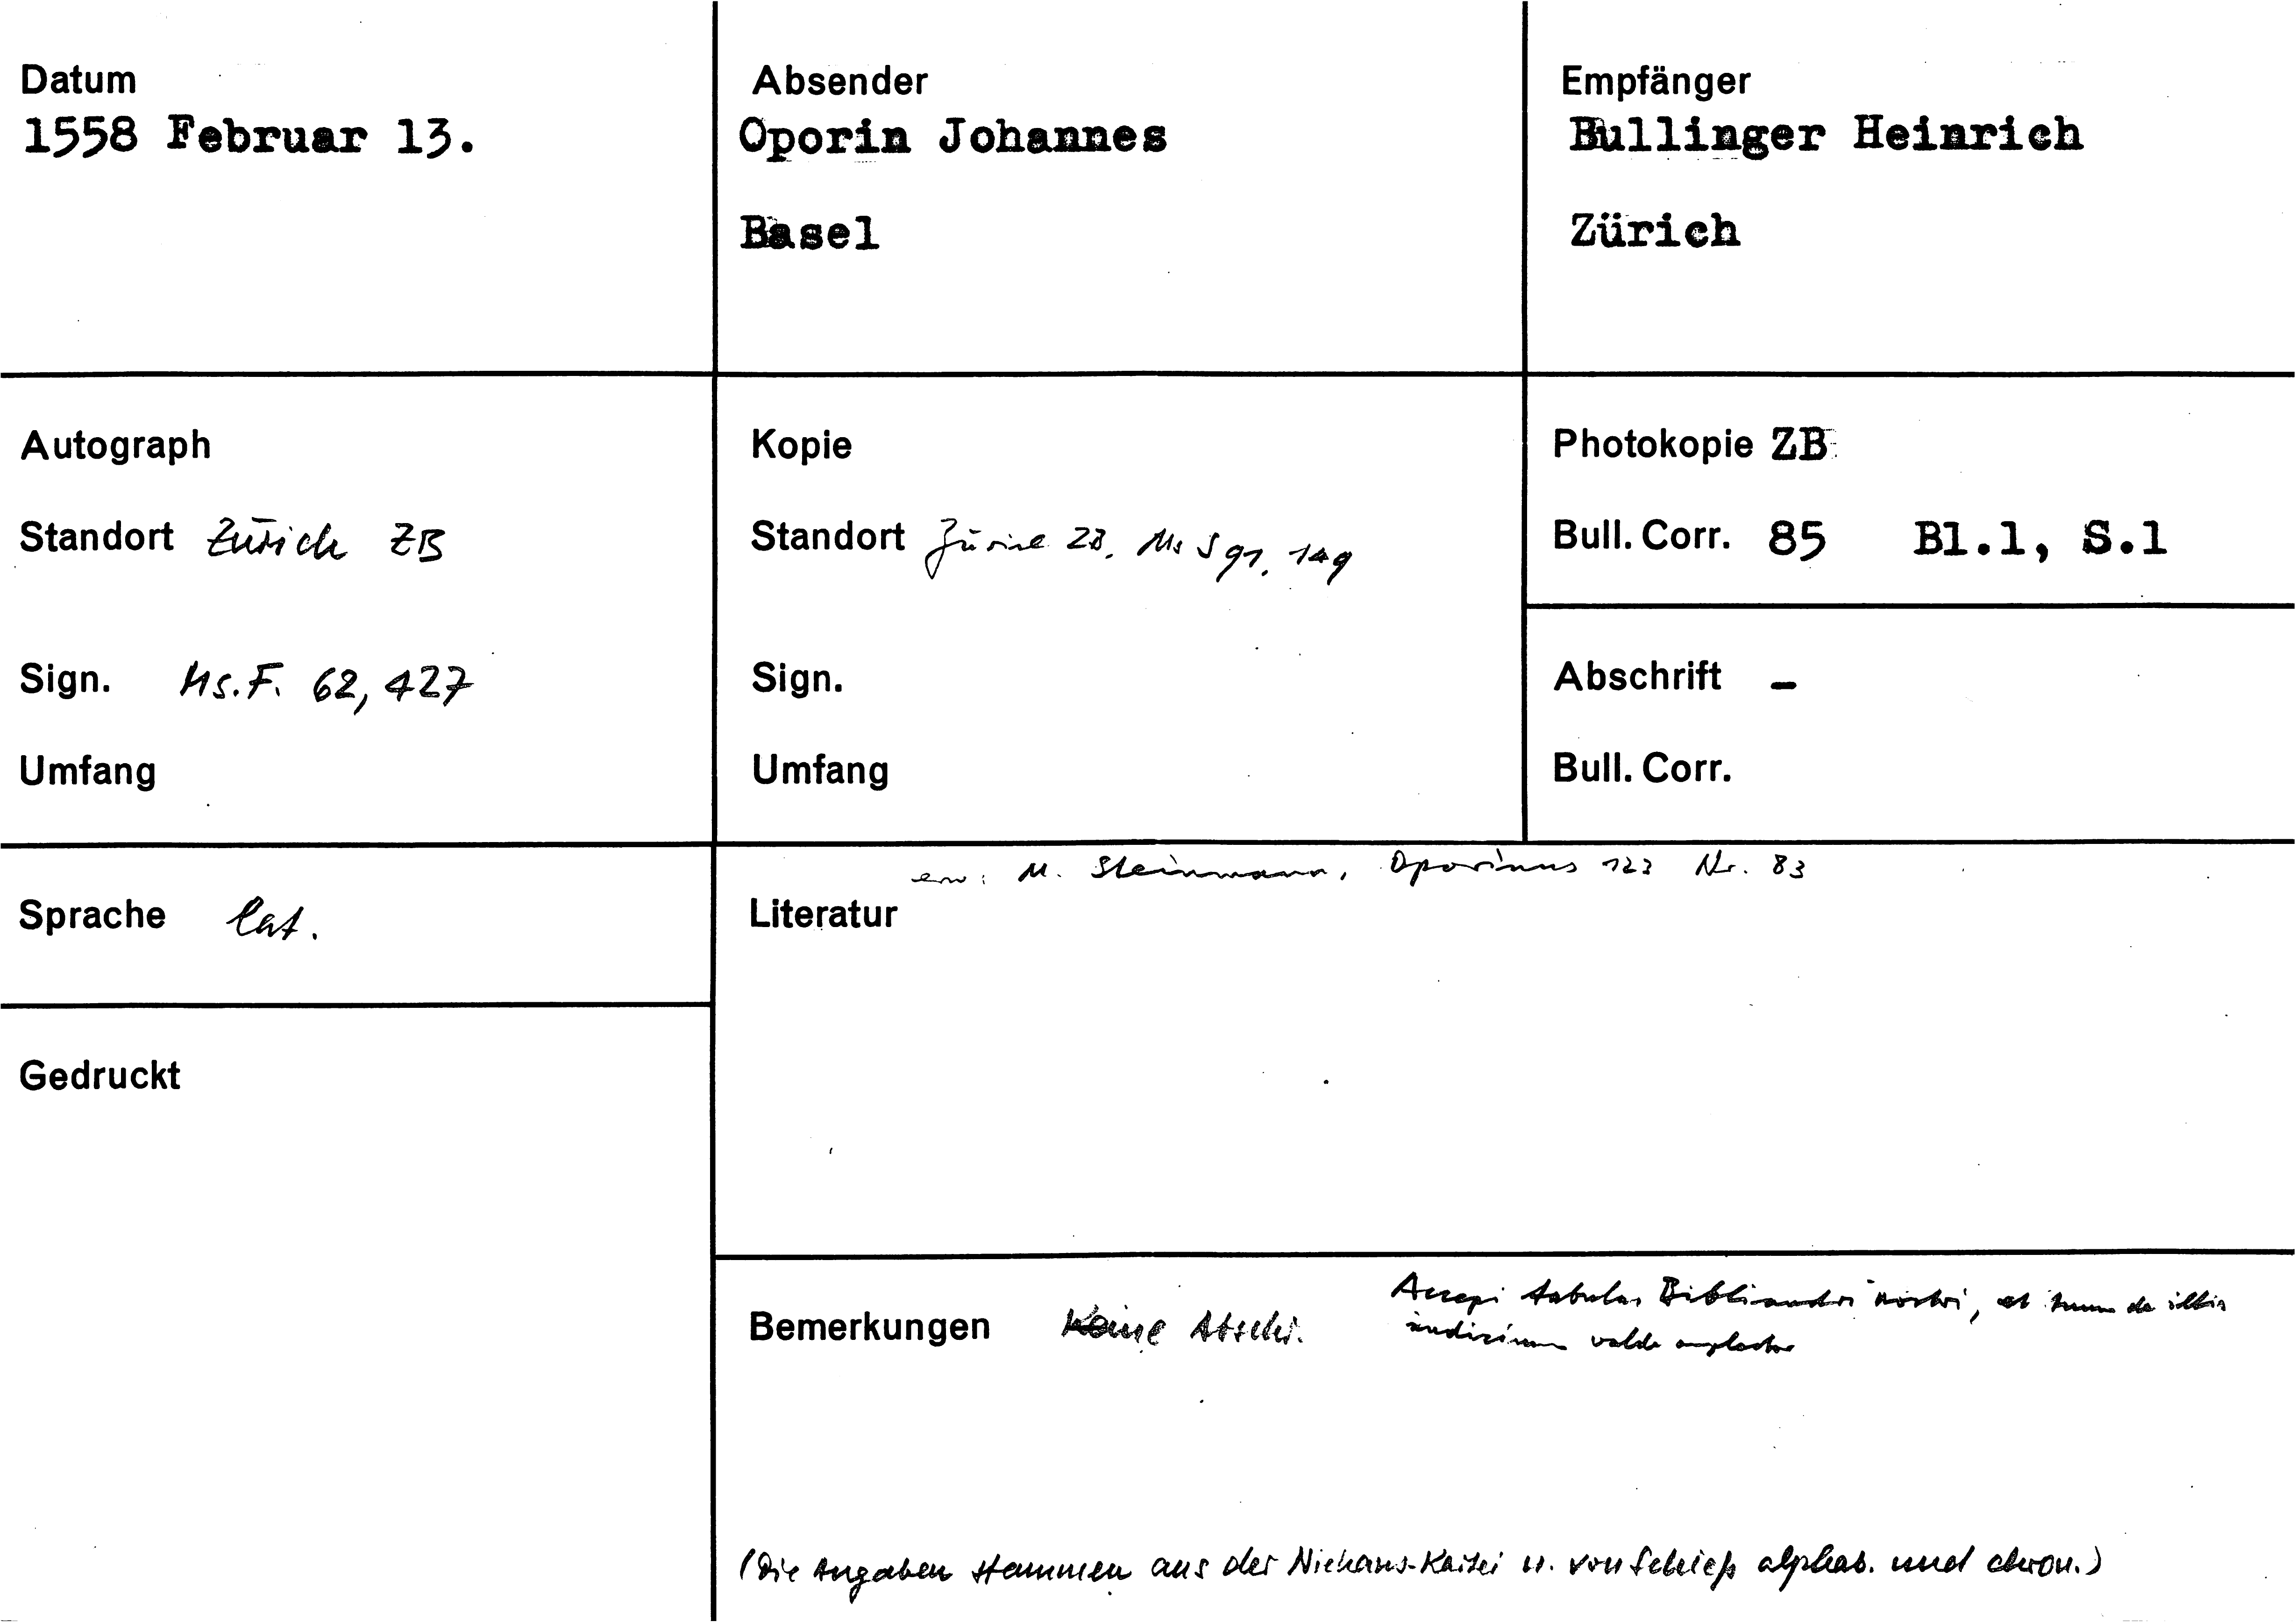 Datum
1558 Februar 13.
Absender
Oporin Johannes
Basel
Empfänger
Bullinger Heinrich
Zürich
Autograph
Standort Zürich ZB
Sign. Ms. F. 62, 427
Umfang
Kopie
Standort Zürich ZB, Ms S 91, 149
Sign.
Umfang
Photokopie ZB
Bull. Corr. 85 Bl.1, S.1
Abschrift -
Bull. Corr.
Sprache lat.
Gedruckt
erw: M. Steinmann, Oporinus 123 Nr. 83
Literatur
Bemerkungen Keine Abschr.
Accepi tabulas Bibliandri nostri, et tuum de illis
iudicium valde amplector
(Die Angaben stammen aus der Niehans-Kartei u. von Schieß alphab. und chron.)